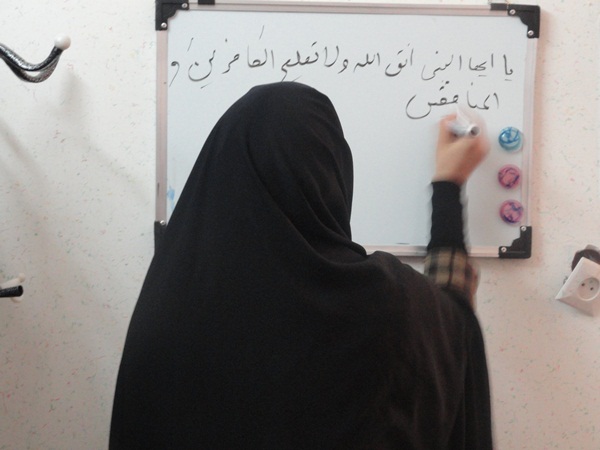 يا ايها النبى اتق الله ولا تطع الكافرين و
المنافقين